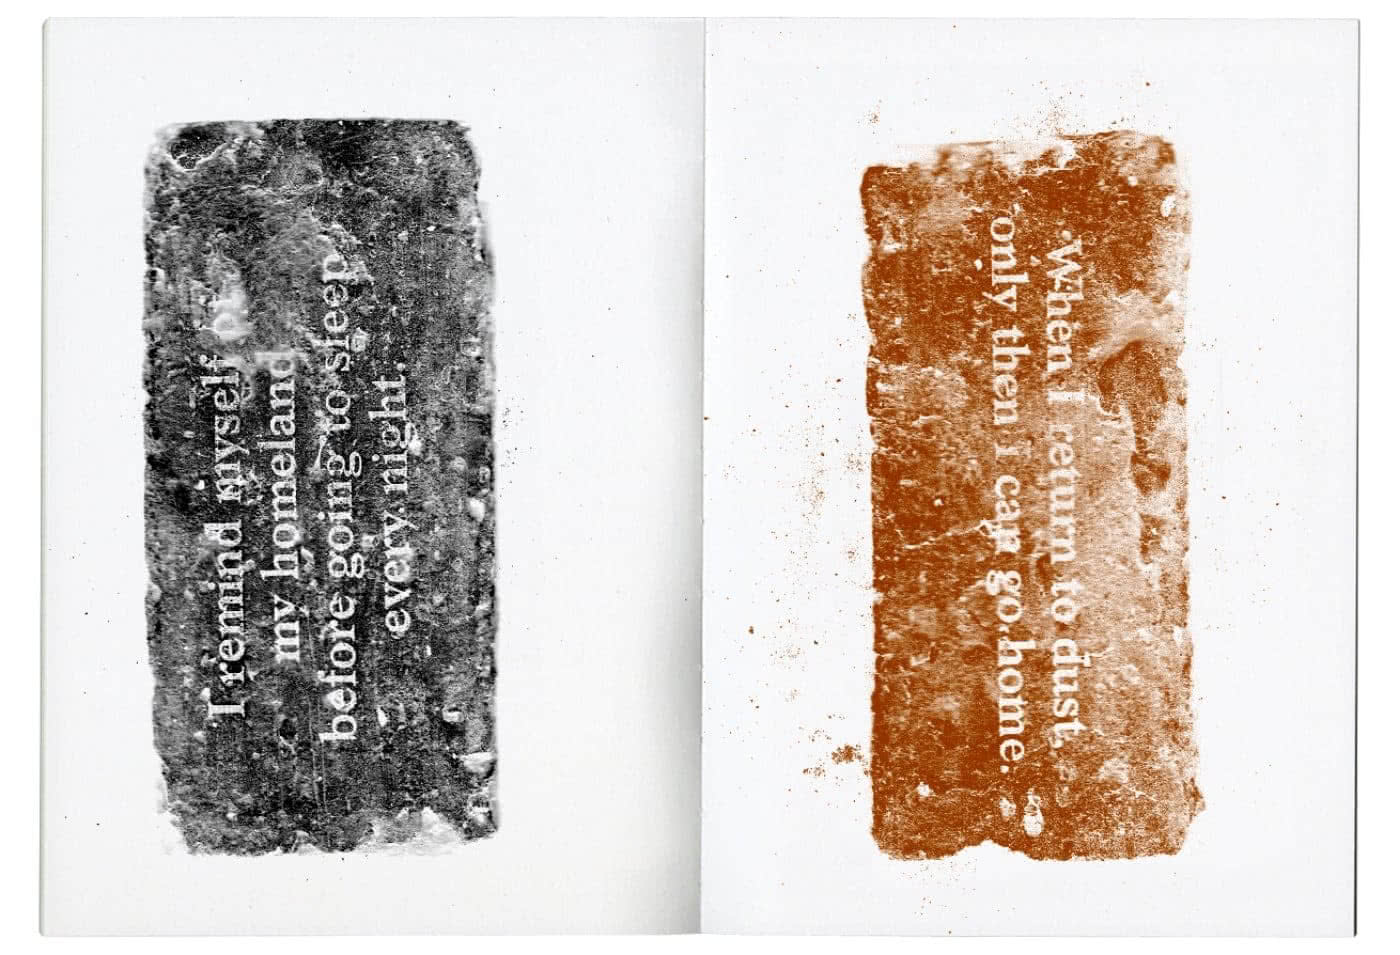 I remind myself
my homeland
before going to sleep
every night.
When I return to dust,
only then I can go home.